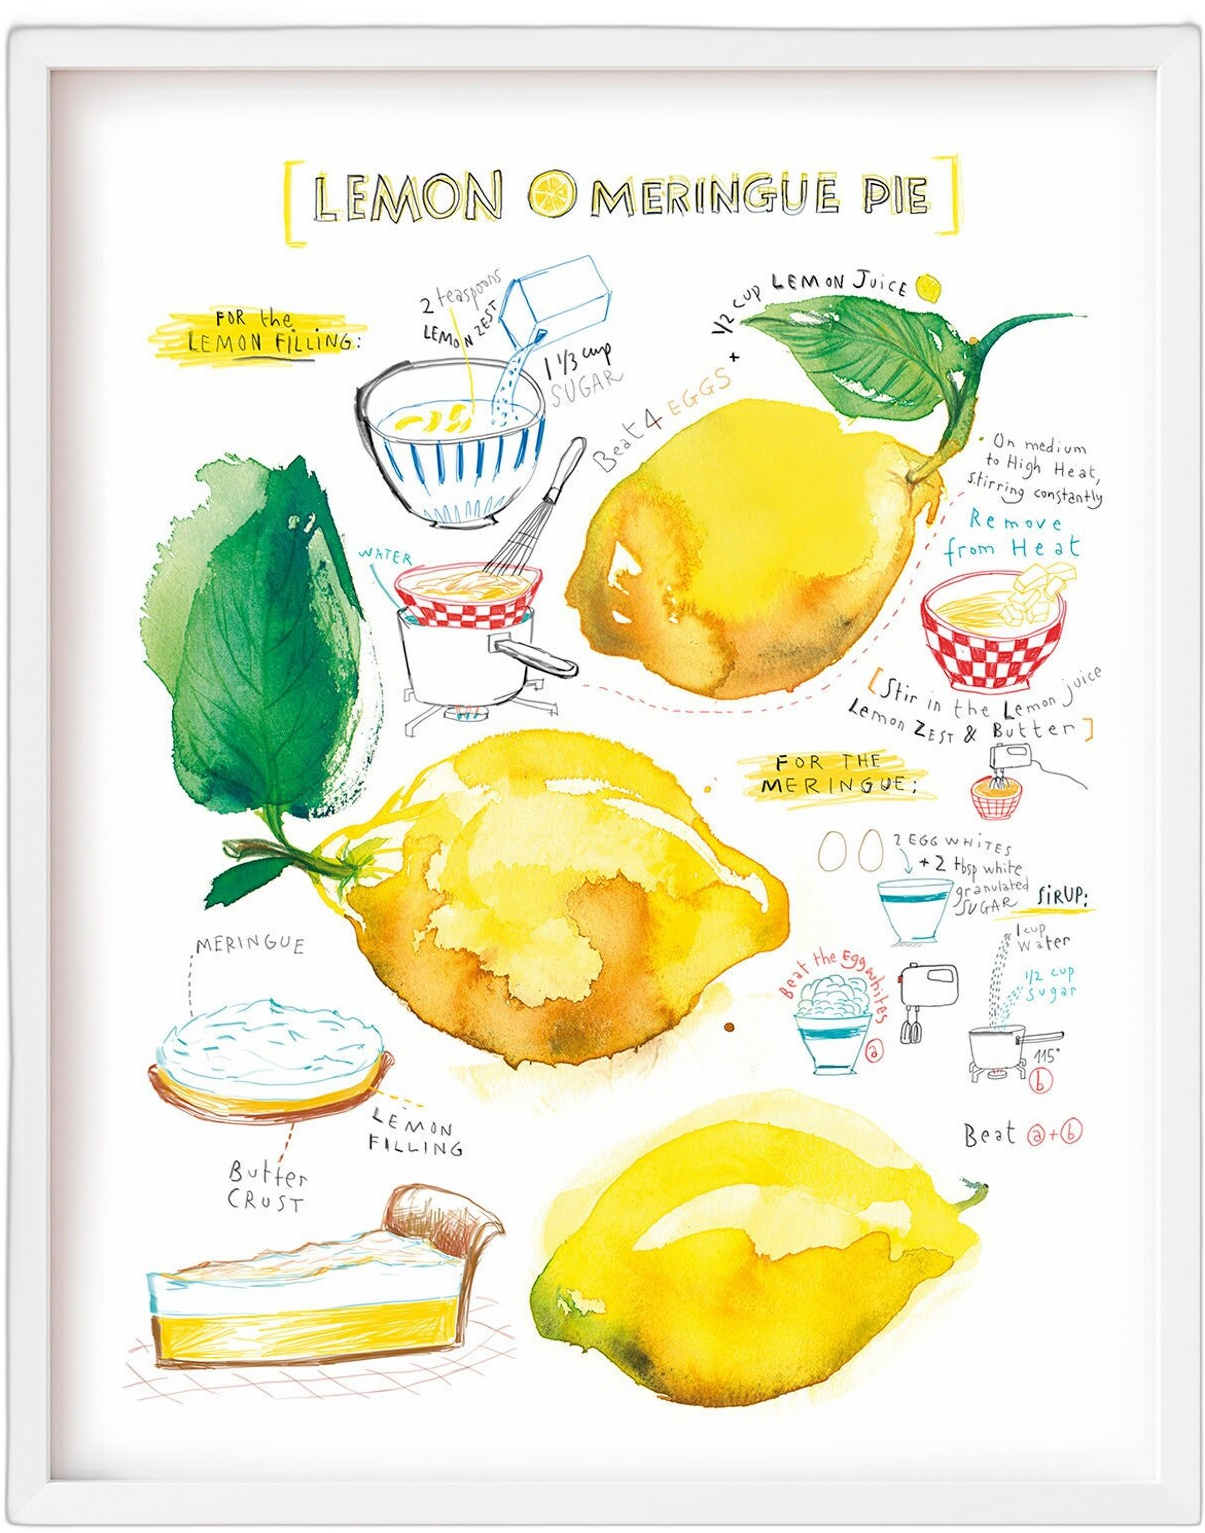 [LEMON MERINGUE PIE]
FOR the
LEMON FILLING:
2 teaspoons
LEMON ZEST
1 1/3 cup
SUGAR
Beat 4 EGGS + 1/2 cup LEMON JUICE
WATER
On medium
to High Heat,
stirring constantly
Remove
from Heat
[Stir in the Lemon juice
Lemon ZEST & Butter]
FOR THE
MERINGUE:
2 EGG WHITES
+ 2 tbsp white
granulated
SUGAR
SIRUP:
1 cup
Water
1/2 cup
sugar
115°
b
Beat the Egg whites
a
Beat a + b
MERINGUE
LEMON
FILLING
Butter
CRUST